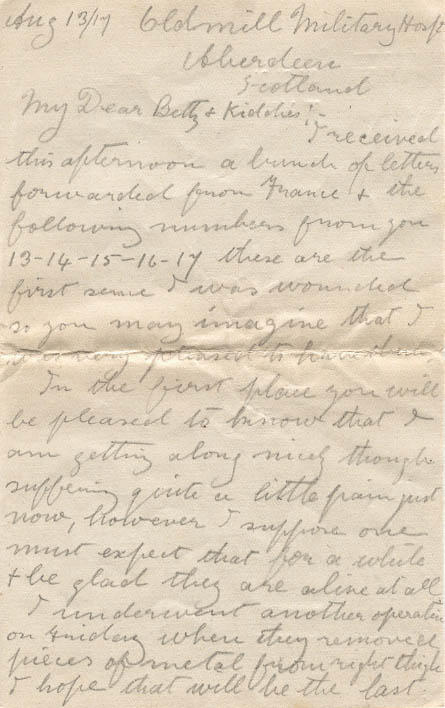 Aug 13/17 Oldmill Military Hosp
Aberdeen
Scotland
My Dear Betty & Kiddies:-
I received
this afternoon a bunch of letters
forwarded from France & the
following numbers from you
13-14-15-16-17 these are the
first since I was wounded
so you may imagine that I
was very pleased to have them.
In the first place you will
be pleased to know that I
am getting along nicely though
suffering quite a little pain just
now, however I suppose one
must expect that for a while
& be glad they are alive at all
I underwent another operation
on Friday when they removed
pieces of metal from right thigh
I hope that will be the last.